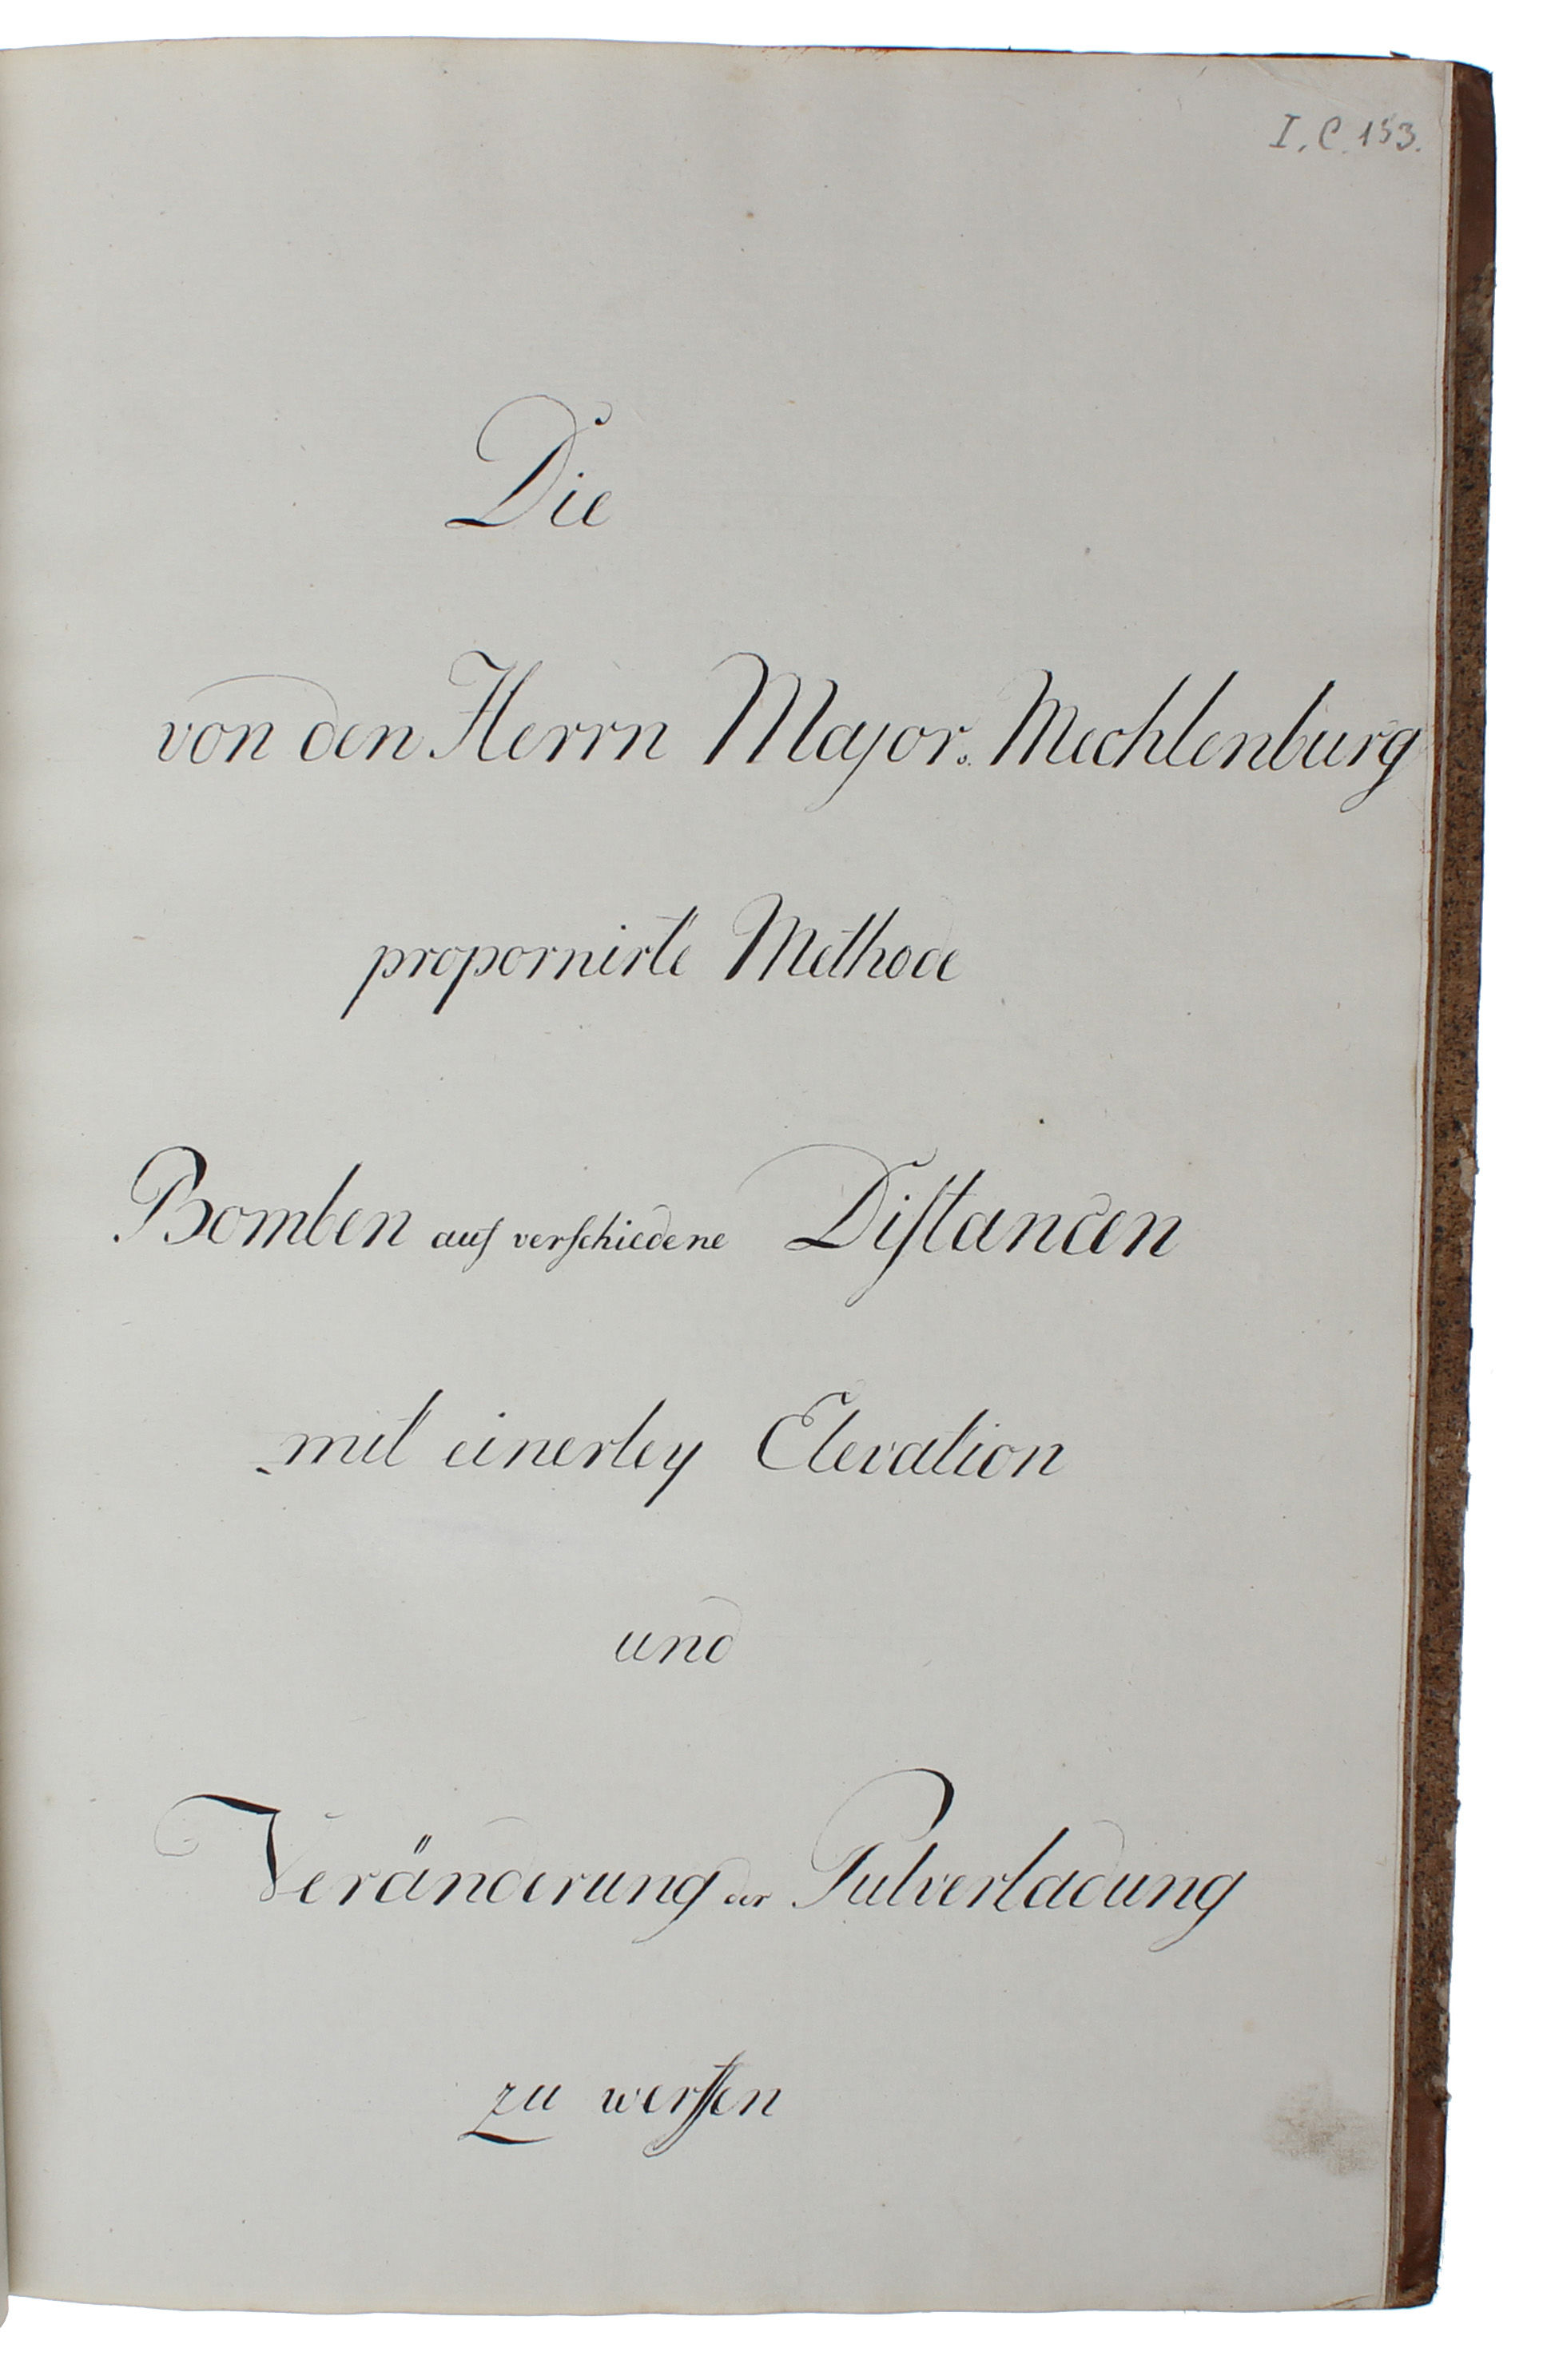 I. C. 153.
Die
von den Herrn Major. Mechlenburg
propornirte Methode
Bomben auf verſchiedene Diſtancen
mit einerley Elevation
und
Veränderung der Pulverladung
zu werffen